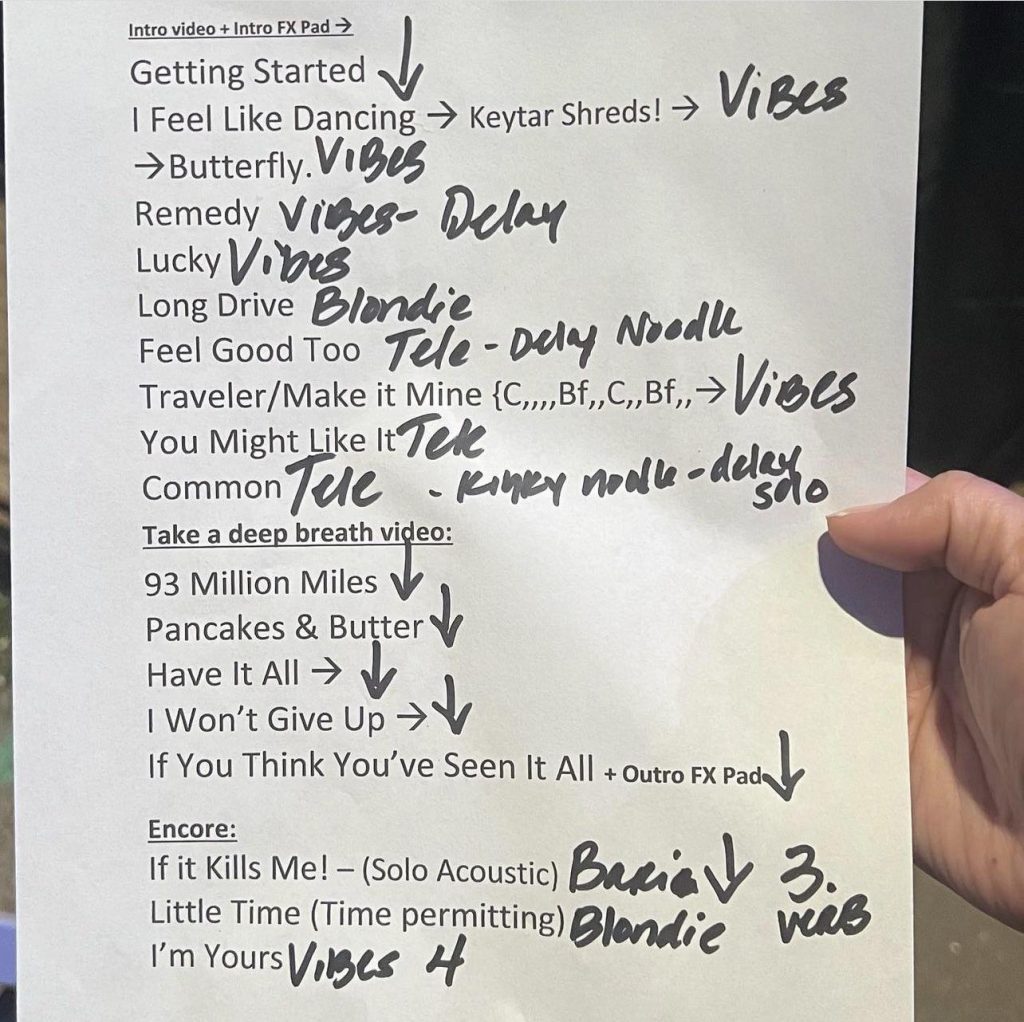 Intro video + Intro FX Pad → ↓
Getting Started
I Feel Like Dancing → Keytar Shreds! → ViBes
→Butterfly. ViBes
Remedy ViBes- Delay
Lucky Vibes
Long Drive Blondie
Feel Good Too Tele - Delay Noodle
Traveler/Make it Mine {C,,,,Bf,,C,,Bf,,→ ViBes
You Might Like It Tele
Common Tele - Kinky noodle - delay solo
Take a deep breath video:
93 Million Miles ↓
Pancakes & Butter ↓
Have It All → ↓
I Won't Give Up → ↓
If You Think You've Seen It All + Outro FX Pad ↓
Encore:
If it Kills Me! – (Solo Acoustic) ↓ 3.
Little Time (Time permitting) Blondie verB
I'm Yours ViBes 4